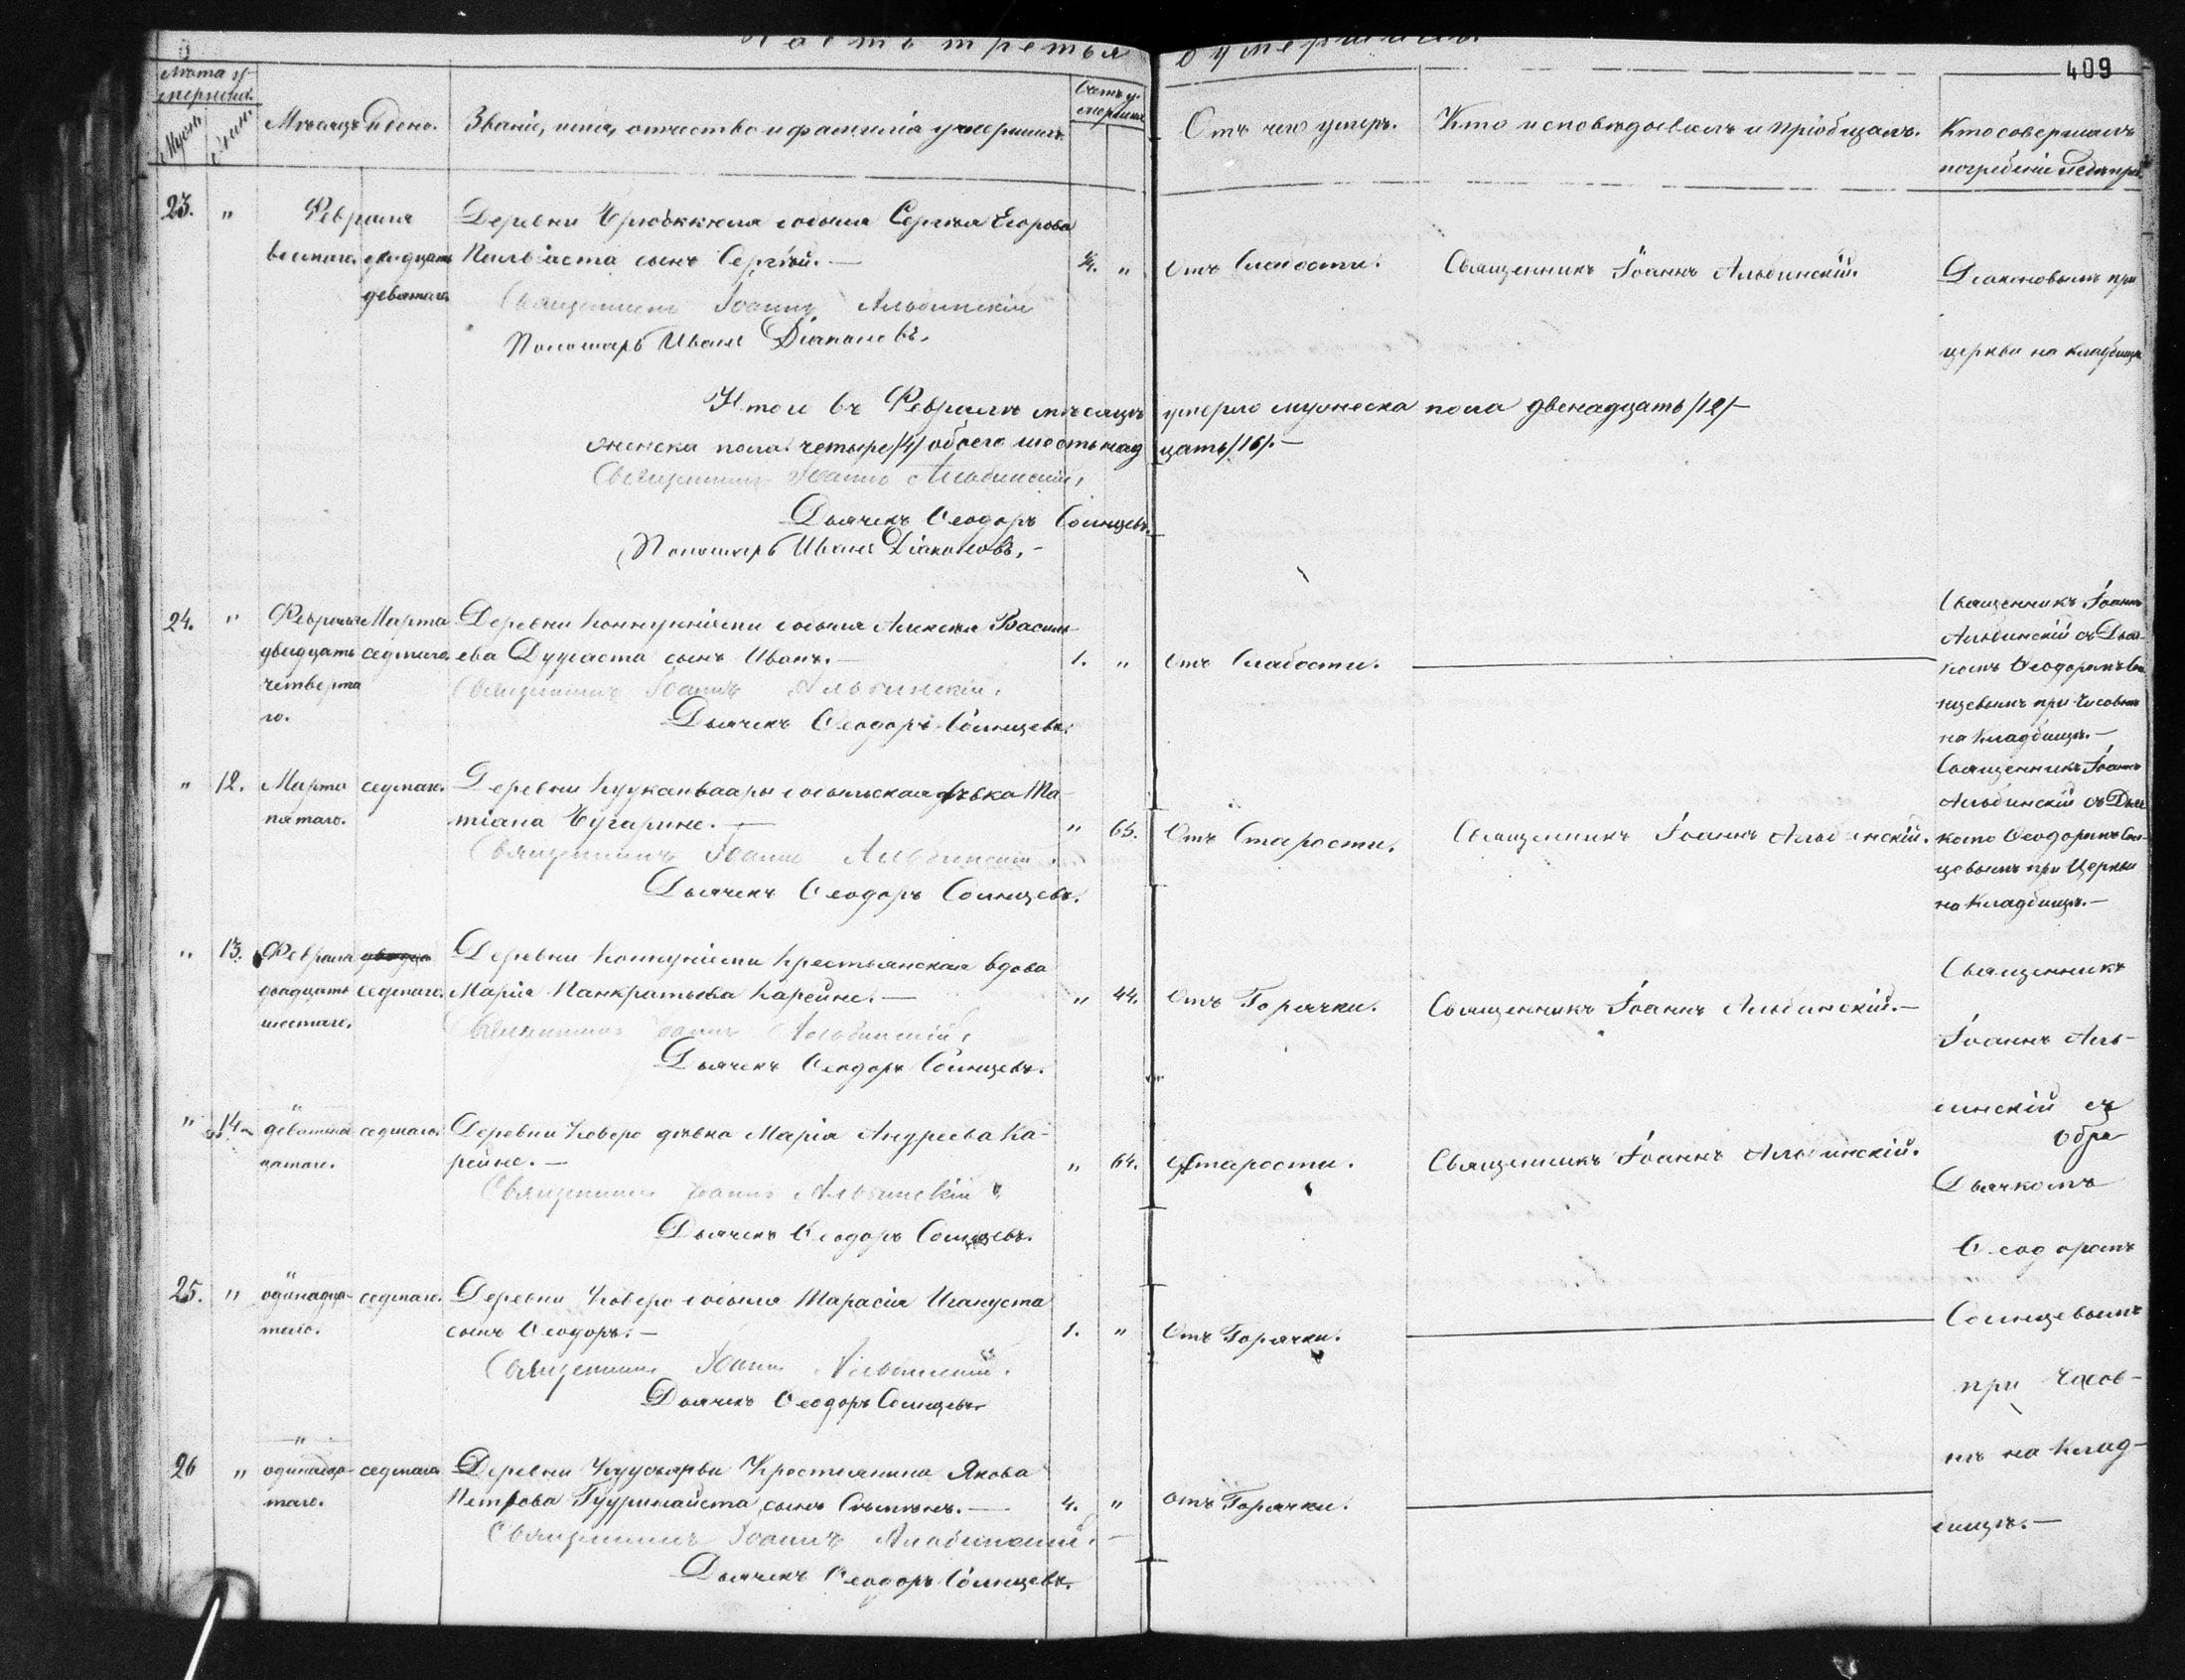 Часть третья о умершихъ
409
Счетъ умершихъ.
Мужеск.
Женск.
Мѣсяцъ и день.
Званіе, имя, отчество и фамилія умершихъ
Лѣта умершихъ
Отъ чего умеръ.
Кто исповѣдовалъ и пріобщалъ.
Кто совершалъ
погребеніе и гдѣ
23. "
Февраля
двадцать
девятаго
Деревни собыля Сергѣя Егорова
сынъ Сергѣй. —
Священникъ Іоаннъ Альбинскій
Пономарь Иванъ Діаконовъ.
"
Отъ слабости.
Священникъ Іоаннъ Альбинскій.
Діаконовымъ при
церкви на кладбищѣ
Итого въ Февралѣ мѣсяцѣ умерло мужеска пола двенадцать /12/ —
женска пола четыре /4/ обоего шестьнадцать /16/. —
Священникъ Іоаннъ Альбинскій,
Дьячекъ Ѳеодоръ Солнцевъ.
Пономарь Иванъ Діаконовъ. —
24. "
Февраля
двадцать
четверта
го.
Марта
седмаго.
Деревни собыля Алексѣя Василь-
ева сынъ Иванъ. —
Священникъ Іоаннъ Альбинскій.
Дьячекъ Ѳеодоръ Солнцевъ.
1. "
Отъ Слабости.
Священникъ Іоаннъ
Альбинскій съ Дьяч-
комъ Ѳеодоромъ Сол
нцевымъ при Часовнѣ
на Кладбищѣ. —
" 12.
Марта
пятаго.
седмаго.
Деревни Кууканваары собыльская дѣвка Та-
тіана —
Священникъ Іоаннъ Альбинскій.
Дьячекъ Ѳеодоръ Солнцевъ.
" 65.
Отъ Старости.
Священникъ Іоаннъ Альбинскій.
Священникъ Іоаннъ
Альбинскій съ Дьяч
комъ Ѳеодоромъ Солн-
цевымъ при Церкви
на Кладбищѣ. —
" 13.
Февраля
двадцать
шестаго.
седмаго.
Деревни крестьянская вдова
Марія Панкратьева Карейне. —
Священникъ Іоаннъ Альбинскій,
Дьячекъ Ѳеодоръ Солнцевъ.
" 44.
Отъ Горячки.
Священникъ Іоаннъ Альбинскій. —
Священникъ
Іоаннъ Аль-
бинскій съ
Дьячкомъ
Ѳеодоромъ
Солнцевымъ
при Часов-
нѣ на Клад-
бищѣ. —
" 14
"
девятна
цатаго.
седмаго.
Деревни Коверо дѣвка Марія Андреева Ка-
рейне. —
Священникъ Іоаннъ Альбинскій
Дьячекъ Ѳеодоръ Солнцевъ.
" 64.
Старости.
Священникъ Іоаннъ Альбинскій.
25. "
"
одинадца-
таго.
седмаго.
Деревни Коверо собыля Тарасія
сынъ Ѳеодоръ. —
Священникъ Іоаннъ Альбинскій.
Дьячекъ Ѳеодоръ Солнцевъ.
1. "
Отъ Горячки.
26 "
"
одинадца-
таго.
седмаго
Деревни Крестьянина Якова
Петрова сынъ —
Священникъ Іоаннъ Альбинскій. —
Дьячекъ Ѳеодоръ Солнцевъ.
4. "
отъ Горячки.